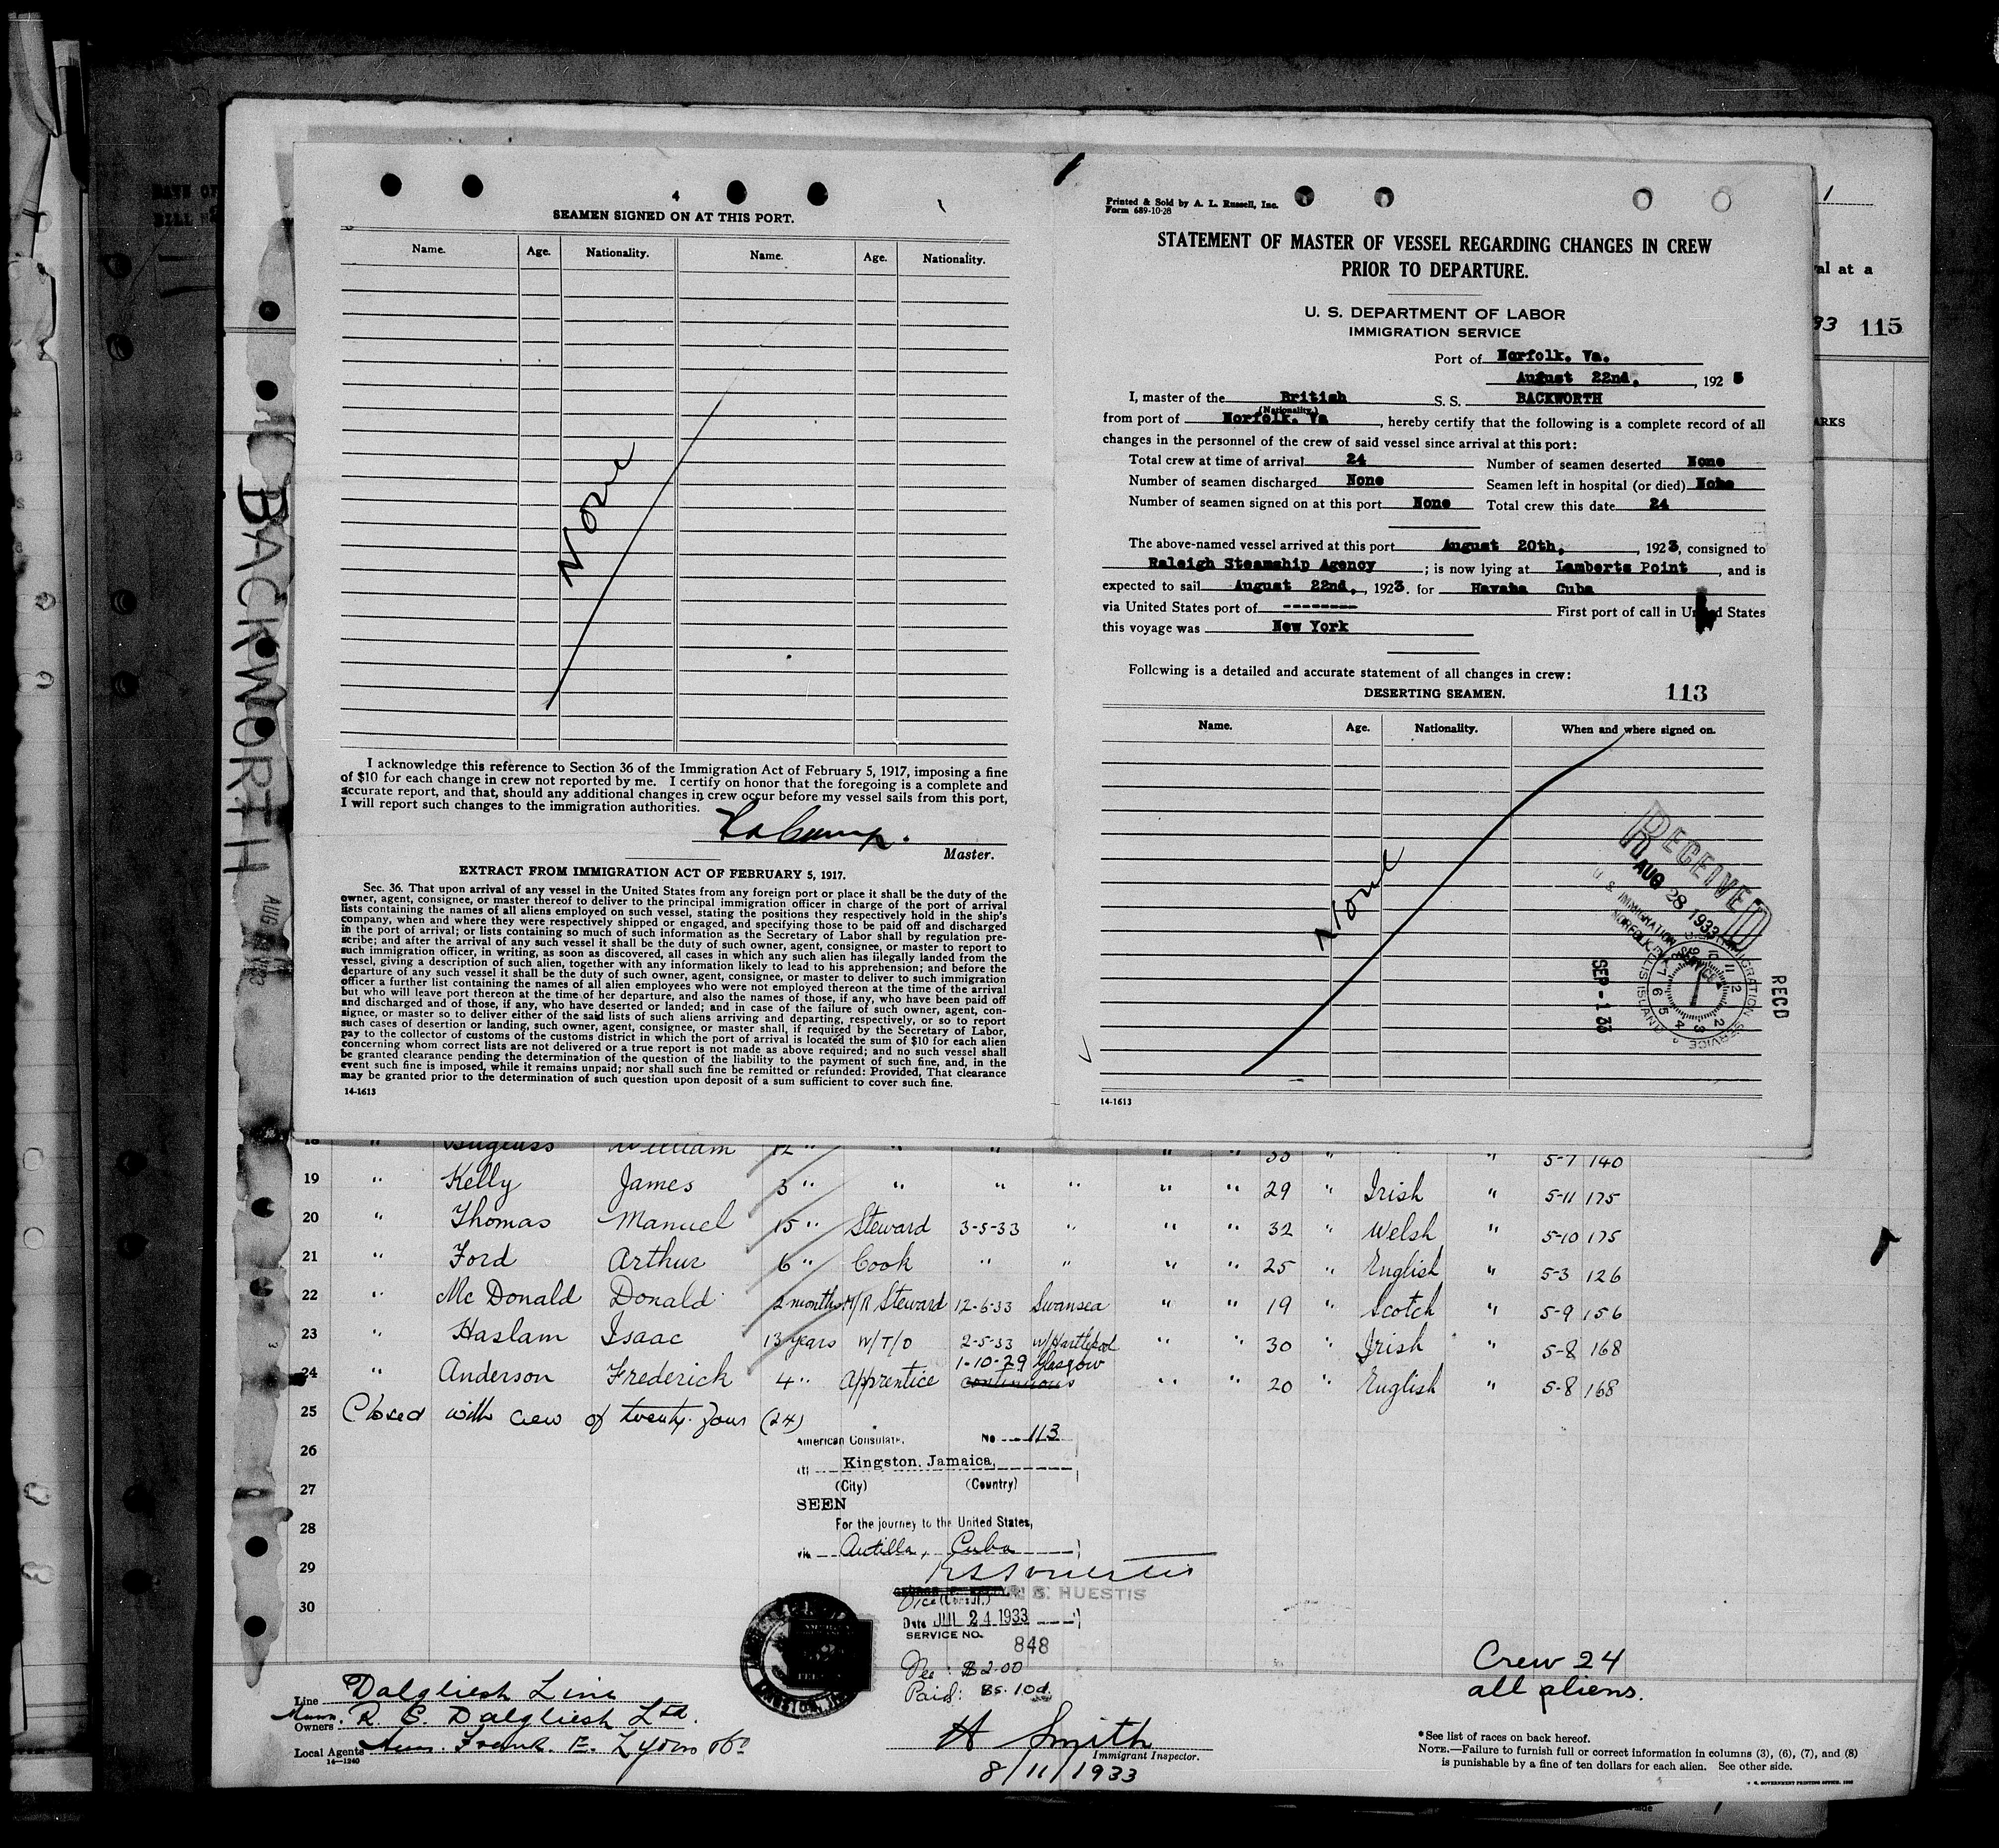 4
SEAMEN SIGNED ON AT THIS PORT.
Name. Age. Nationality. Name. Age. Nationality.
None
I acknowledge this reference to Section 36 of the Immigration Act of February 5, 1917, imposing a fine
of $10 for each change in crew not reported by me. I certify on honor that the foregoing is a complete and
accurate report, and that, should any additional changes in crew occur before my vessel sails from this port,
I will report such changes to the immigration authorities.
Master.
EXTRACT FROM IMMIGRATION ACT OF FEBRUARY 5, 1917.
Sec. 36. That upon arrival of any vessel in the United States from any foreign port or place it shall be the duty of the
owner, agent, consignee, or master thereof to deliver to the principal immigration officer in charge of the port of arrival
lists containing the names of all aliens employed on such vessel, stating the positions they respectively hold in the ship's
company, when and where they were respectively shipped or engaged, and specifying those to be paid off and discharged
in the port of arrival; or lists containing so much of such information as the Secretary of Labor shall by regulation pre-
scribe; and after the arrival of any such vessel it shall be the duty of such owner, agent, consignee, or master to report to
such immigration officer, in writing, as soon as discovered, all cases in which any such alien has illegally landed from the
vessel, giving a description of such alien, together with any information likely to lead to his apprehension; and before the
departure of any such vessel it shall be the duty of such owner, agent, consignee, or master to deliver to such immigration
officer a further list containing the names of all alien employees who were not employed thereon at the time of the arrival
but who will leave port thereon at the time of her departure, and also the names of those, if any, who have been paid off
and discharged and of those, if any, who have deserted or landed; and in case of the failure of such owner, agent, con-
signee, or master so to deliver either of the said lists of such aliens arriving and departing, respectively, or so to report
such cases of desertion or landing, such owner, agent, consignee, or master shall, if required by the Secretary of Labor,
pay to the collector of customs of the customs district in which the port of arrival is located the sum of $10 for each alien
concerning whom correct lists are not delivered or a true report is not made as above required; and no such vessel shall
be granted clearance pending the determination of the question of the liability to the payment of such fine, and, in the
event such fine is imposed, while it remains unpaid; nor shall such fine be remitted or refunded: Provided, That clearance
may be granted prior to the determination of such question upon deposit of a sum sufficient to cover such fine.
14-1613
Printed & Sold by A. L. Russell, Inc.
Form 689-10-28
STATEMENT OF MASTER OF VESSEL REGARDING CHANGES IN CREW
PRIOR TO DEPARTURE.
U. S. DEPARTMENT OF LABOR
IMMIGRATION SERVICE
Port of Norfolk. Va.
August 22nd, , 192 3
I, master of the British S. S. BACKWORTH
(Nationality.)
from port of Norfolk. Va , hereby certify that the following is a complete record of all
changes in the personnel of the crew of said vessel since arrival at this port:
Total crew at time of arrival 24 Number of seamen deserted None
Number of seamen discharged None Seamen left in hospital (or died) None
Number of seamen signed on at this port None Total crew this date 24
The above-named vessel arrived at this port August 20th, , 1923, consigned to
Raleigh Steamship Agency ; is now lying at Lamberts Point , and is
expected to sail August 22nd. , 1923. for Havana Cuba
via United States port of -------- First port of call in United States
this voyage was New York
Following is a detailed and accurate statement of all changes in crew:
DESERTING SEAMEN. 113
Name. Age. Nationality. When and where signed on.
None
RECEIVED
AUG 28 1933
U S IMMIGRATION SERVICE
NORFOLK,
SEP - 1 33
RECD
14-1613
1
al at a
33 115
ARKS
BACKWORTH
18 " William 12 " " " " " " 5-7 140
19 " Kelly James 3 " " " " " " 29 " Irish " 5-11 175
20 " Thomas Manuel 15 " Steward 3-5-33 " " " 32 " Welsh " 5-10 175
21 " Ford Arthur 6 " Cook " " " " 25 " English " 5-3 126
22 " Mc Donald Donald 2 months M/R Steward 12-6-33 Swansea " " 19 " Scotch " 5-9 156
23 " Haslam Isaac 13 years W/T/O 2-5-33 W/Hartlepool " " 30 " Irish " 5-8 168
1-10-29 Glasgow
24 " Anderson Frederick 4 " Apprentice continuous " " 20 " English " 5-8 168
25 Closed with crew of twenty-four (24)
26
27
28
29
30
American Consulate. No 113
at Kingston, Jamaica,
(City) (Country)
SEEN
For the journey to the United States,
via Antilla, Cuba
R. S. HUESTIS
Vice Consul
Date JUL 24 1933
SERVICE NO. 848
Fee: $2.00
Paid: 8s. 10d.
Crew 24
all aliens.
Line Dalgliesh Line
Owners R. S. Dalgliesh Ltd.
Local Agents Frank. E. Lyons
14-1240
H Smith
Immigrant Inspector.
8/11/1933
*See list of races on back hereof.
NOTE.—Failure to furnish full or correct information in columns (3), (6), (7), and (8)
is punishable by a fine of ten dollars for each alien. See other side.
U. S. GOVERNMENT PRINTING OFFICE.